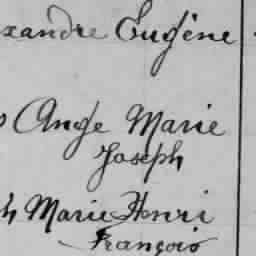 xandre Eugène
Ange Marie
Joseph
h Marie Henri
François